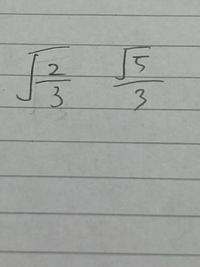 √(2/3) √5/3